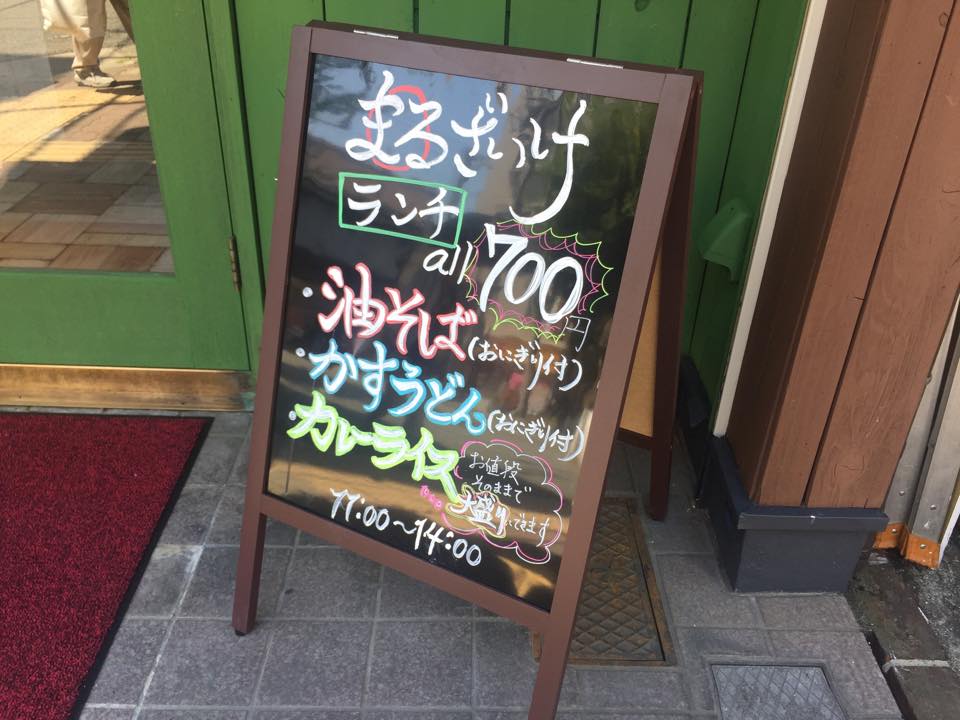 まるざいけ
ランチ
all 700円
・油そば(おにぎり付)
・かすうどん(おにぎり付)
・カレーライス
お値段
そのままで
大盛りにできます
11:00〜14:00